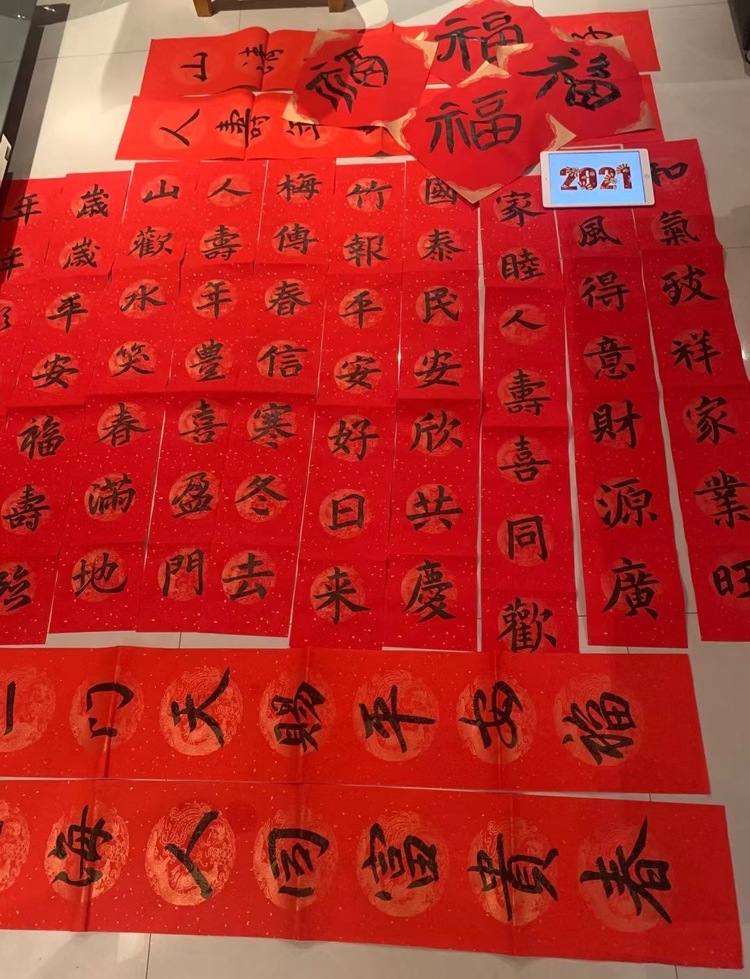 山滿
人壽年
福
福
福
福
2021
和氣致祥家業旺
風得意財源廣
家睦人壽喜同歡
國泰民安欣共慶
竹報平安好日来
梅傳春信寒冬去
人壽年豐喜盈門
山歡水笑春滿地
歲歲平安福壽
年年
一門天賜平安福
海人同富貴春